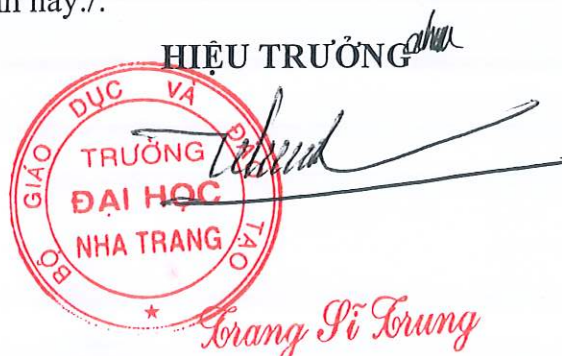 này./.
HIỆU TRƯỞNG
BỘ GIÁO DỤC VÀ ĐÀO TẠO
TRƯỜNG
ĐẠI HỌC
NHA TRANG
Trang Sĩ Trung